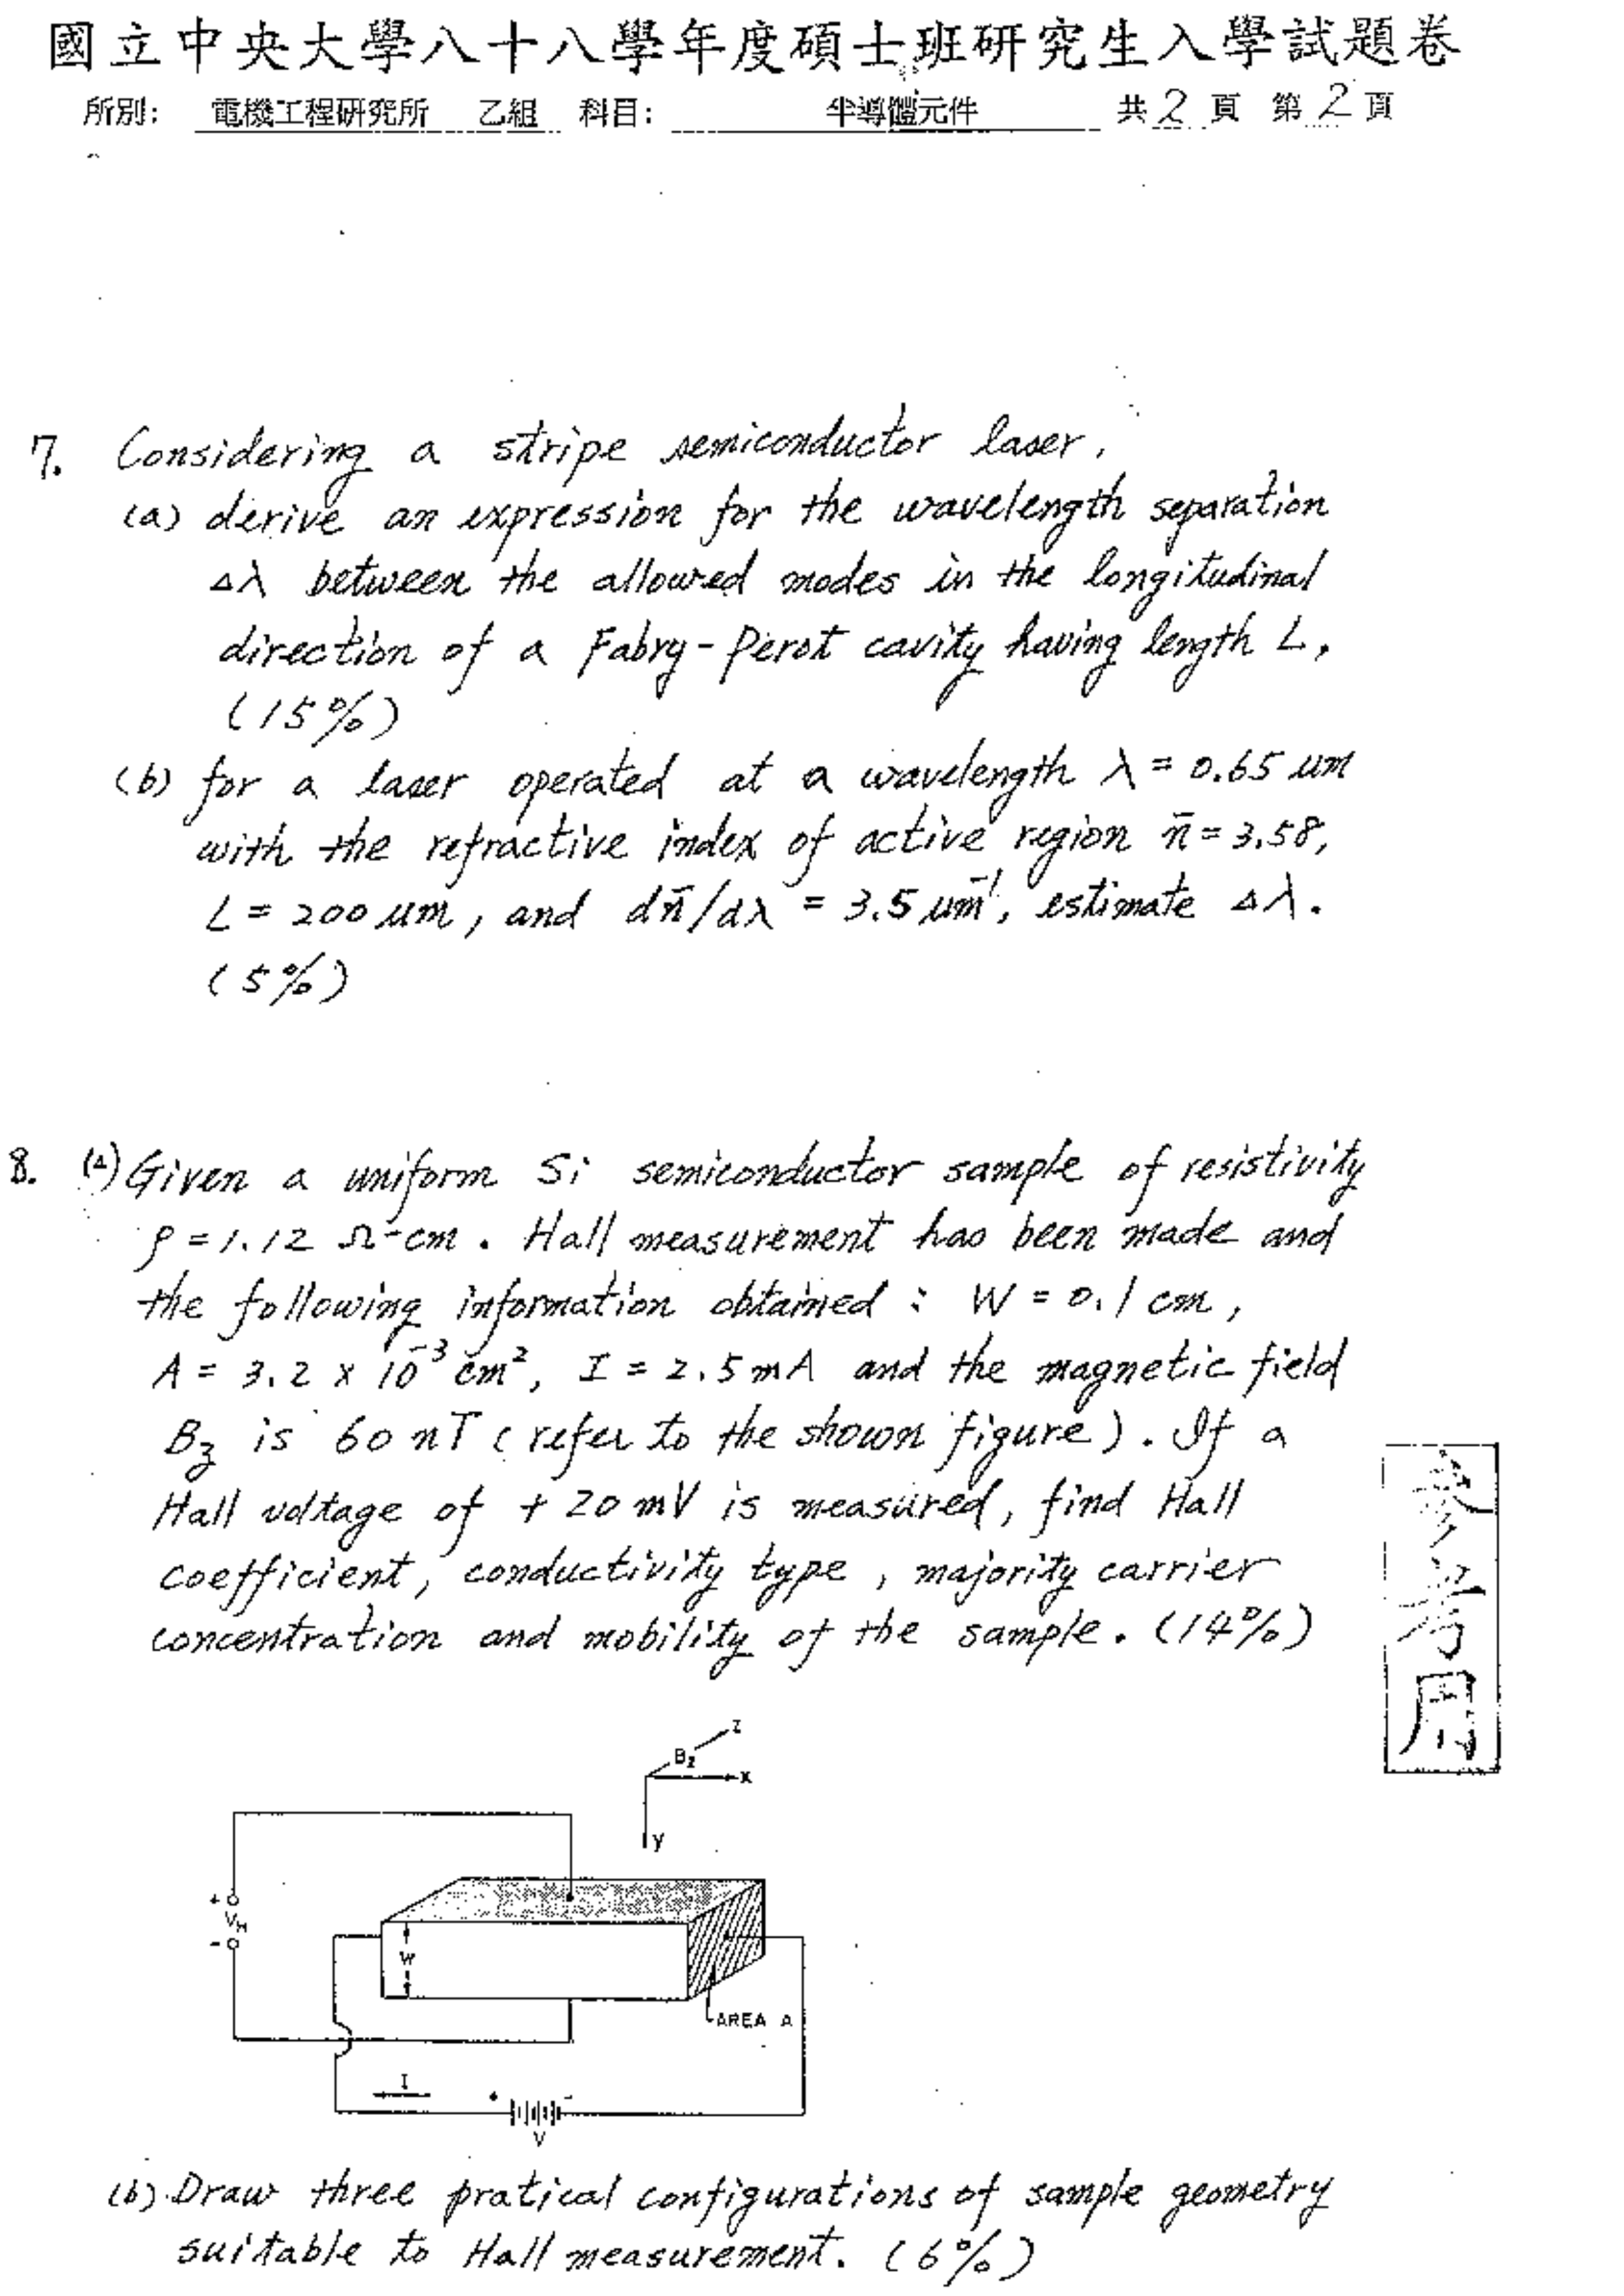 國立中央大學八十八學年度碩士班研究生入學試題卷
所別: 電機工程研究所 乙組 科目: 半導體元件 共 2 頁 第 2 頁
7. Considering a stripe semiconductor laser,
(a) derive an expression for the wavelength separation
Δλ between the allowed modes in the longitudinal
direction of a Fabry-Perot cavity having length L,
(15%)
(b) for a laser operated at a wavelength λ = 0.65 um
with the refractive index of active region n̄ = 3.58,
L = 200 um, and dn̄/dλ = 3.5 um⁻¹, estimate Δλ.
(5%)
8. (a) Given a uniform Si semiconductor sample of resistivity
ρ = 1.12 Ω-cm. Hall measurement has been made and
the following information obtained : W = 0.1 cm,
A = 3.2 x 10⁻³ cm², I = 2.5 mA and the magnetic field
Bz is 60 nT (refer to the shown figure). If a
Hall voltage of + 20 mV is measured, find Hall
coefficient, conductivity type, majority carrier
concentration and mobility of the sample. (14%)
參考用
z
Bz
x
y
+
VH
-
W
AREA A
I
+ -
V
(b) Draw three pratical configurations of sample geometry
suitable to Hall measurement. (6%)